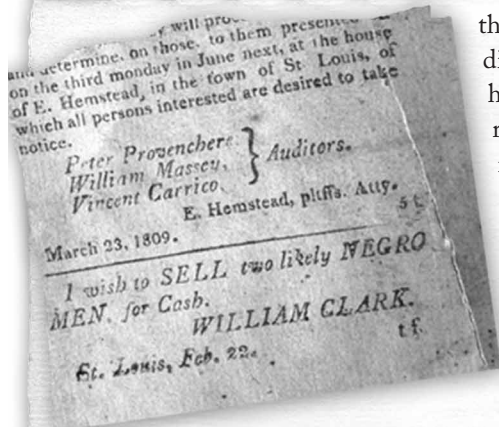 y will pro
and determine, on those, to them presented
on the third monday in June next, at the house
of E. Hemstead, in the town of St. Louis, of
which all persons interested are desired to take
notice.
Peter Provenchere
William Massey,
Vincent Carrico.
} Auditors.
E. Hemstead, pltffs. Atty.
March 23, 1809. 5 t
I wish to SELL two likely NEGRO
MEN, for Cash.
WILLIAM CLARK.
St. Louis, Feb. 22. t f.
th
di
h